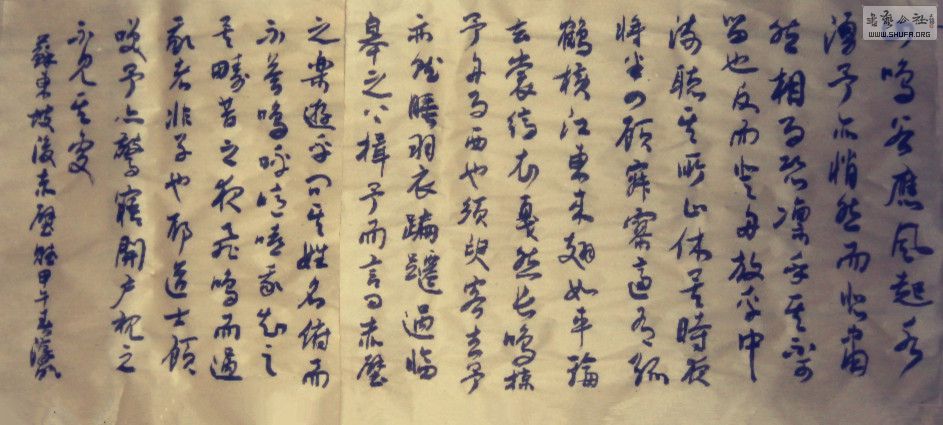 山鳴谷應風起水
湧予亦悄然而悲肅
然相而恐凛乎其不可
留也反而登舟放乎中
流聽其所止休焉時夜
将半四顧寂寥適有孤
鶴横江東来翅如車輪
玄裳縞衣戛然长鳴掠
予舟而西也須臾客去予
亦就睡羽衣蹁躚過臨
皋之下揖予而言曰赤壁
之樂遊乎问其姓名俯而
不答嗚呼噫嘻我知之
矣疇昔之夜飛鳴而過
我者非子也耶道士顧
笑予亦驚寤開户視之
不見其處
蘇東坡後赤壁賦甲午
书艺公社
WWW.SHUFA.ORG